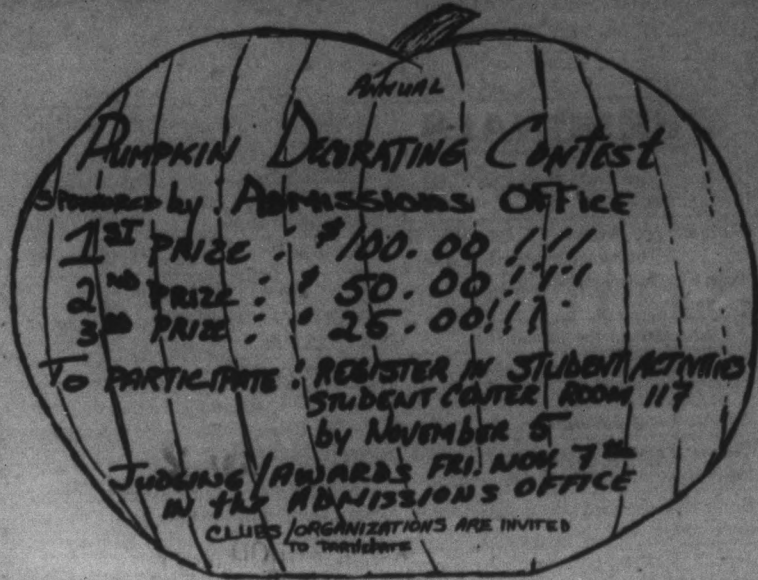 ANNUAL
PUMPKIN DECORATING CONTEST
SPONSORED by: ADMISSIONS OFFICE
1ST PRIZE: $100.00!!!
2ND PRIZE: $50.00!!!!
3RD PRIZE: $25.00!!!
TO PARTICIPATE: REGISTER IN STUDENT ACTIVITIES
STUDENT CENTER ROOM 117
by NOVEMBER 5
JUDGING/AWARDS FRI. NOV. 7TH
IN the ADMISSIONS OFFICE
CLUBS/ORGANIZATIONS ARE INVITED
TO PARTICIPATE